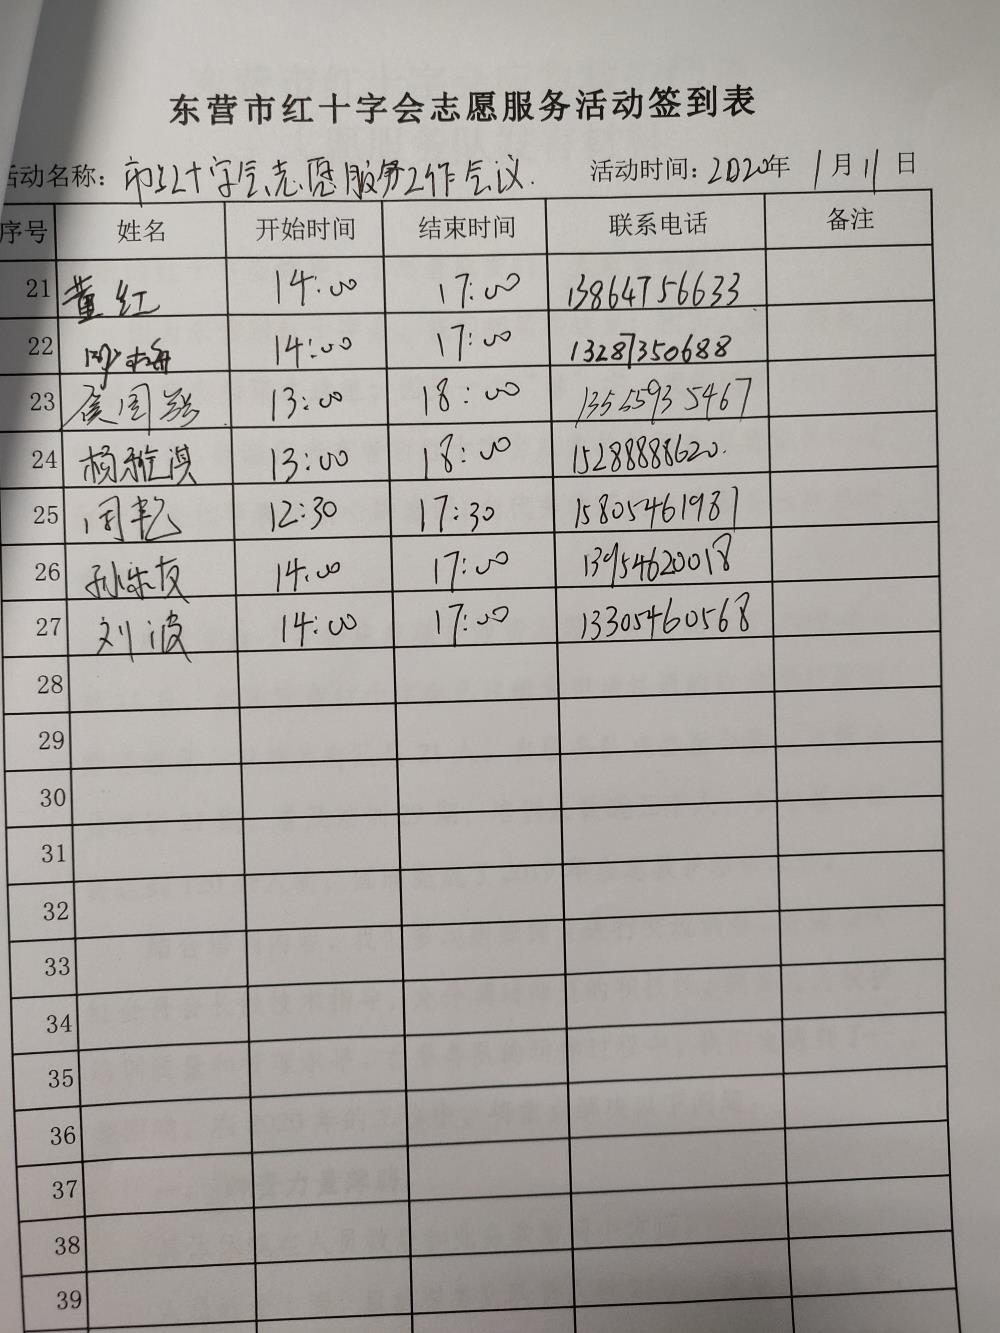 东营市红十字会志愿服务活动签到表
活动名称：市红十字会志愿服务工作会议. 活动时间：2020年1月11日
序号 姓名 开始时间 结束时间 联系电话 备注
21 董红 14:00 17:00 13864756633
22 14:00 17:00 13287350688
23 13:00 18:00 13555935467
24 杨雅淇 13:00 18:00 15288888620.
25 周艳 12:30 17:30 15805461987
26 14:00 17:00 13954620018
27 刘波 14:00 17:00 13305460568
28
29
30
31
32
33
34
35
36
37
38
39